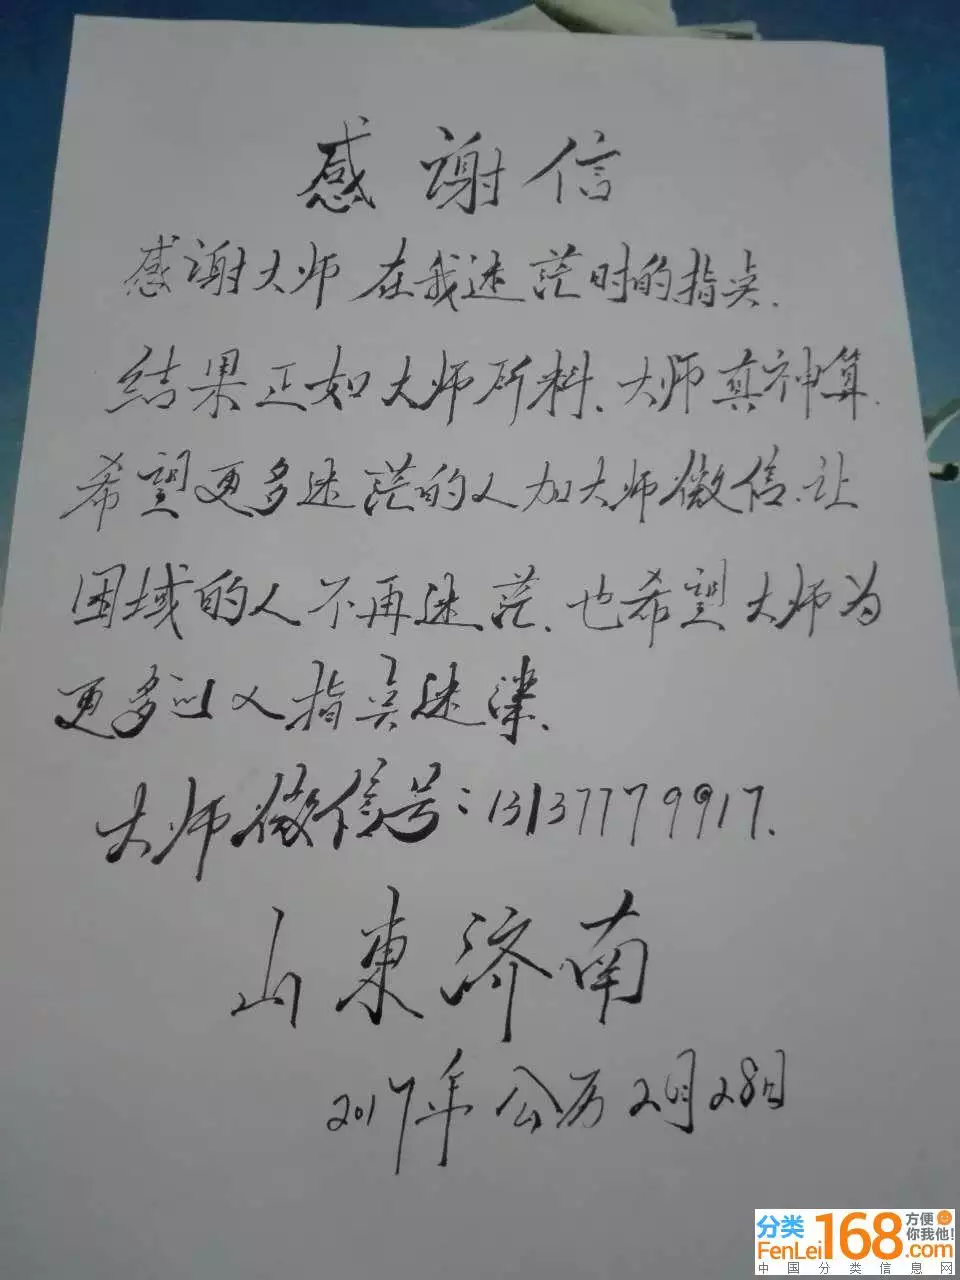 感谢信
感谢大师在我迷茫时的指点.
结果正如大师所料、大师真神算.
希望更多迷茫的人加大师微信、让
困域的人不再迷茫、也希望大师为
更多的人指点迷津、
大师微信号:13137779917.
山東济南
2017年公历2月28日
分类168.com
FenLei
方便你我他!
中国分类信息网